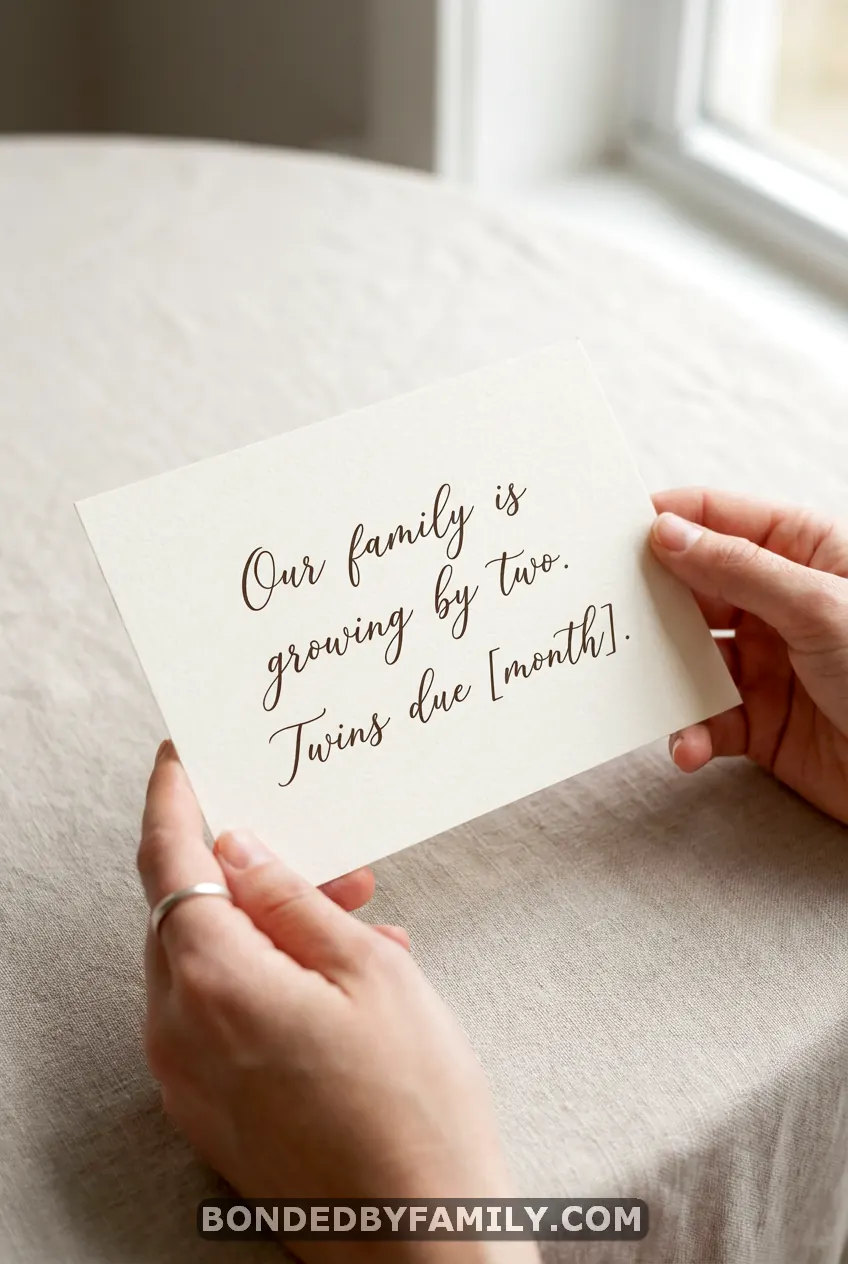 Our family is
growing by two.
Twins due [month].
BONDEDBYFAMILY.COM